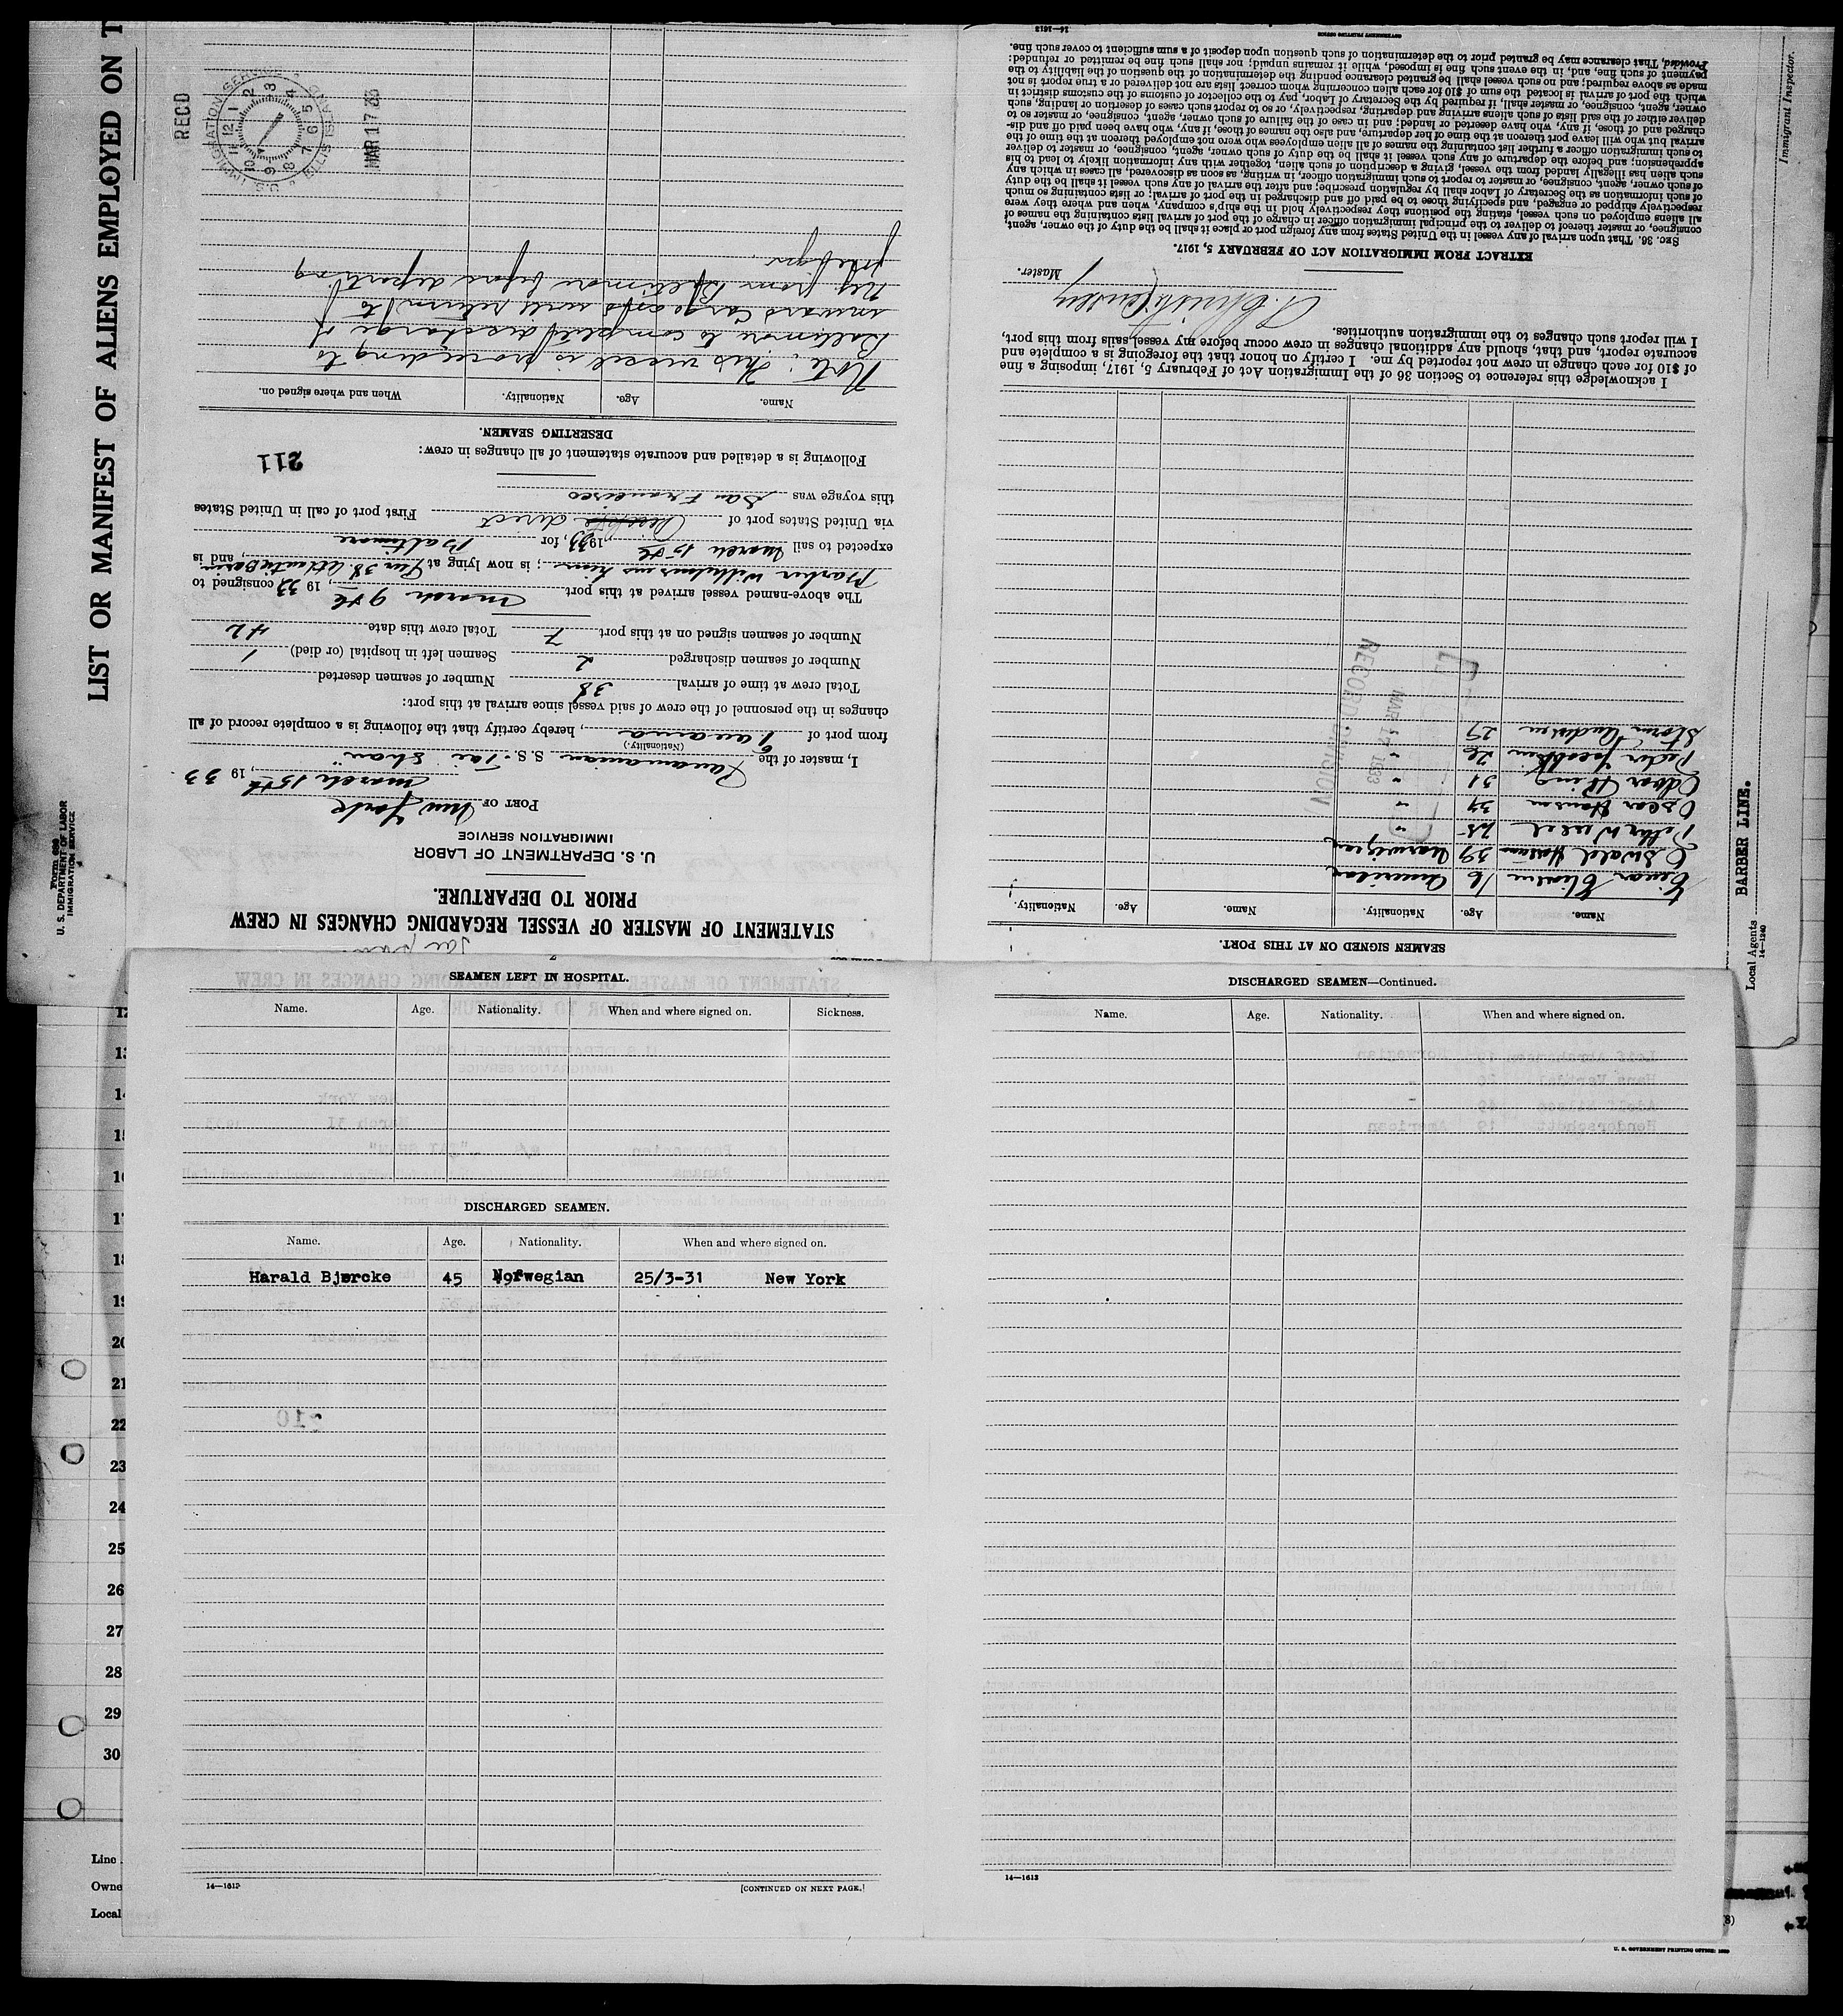 LIST OR MANIFEST OF ALIENS EMPLOYED ON T
Form 689
U. S. DEPARTMENT OF LABOR
IMMIGRATION SERVICE
STATEMENT OF MASTER OF VESSEL REGARDING CHANGES IN CREW
PRIOR TO DEPARTURE.
U. S. DEPARTMENT OF LABOR
IMMIGRATION SERVICE
PORT OF New York
March 15th, 1933
I, master of the Panamanian S. S. Tai Shan
(Nationality.)
from port of Panama, hereby certify that the following is a complete record of all
changes in the personnel of the crew of said vessel since arrival at this port:
Total crew at time of arrival 38 Number of seamen deserted
Number of seamen discharged 2 Seamen left in hospital (or died) 1
Number of seamen signed on at this port 7 Total crew this date 42
The above-named vessel arrived at this port March 9th, 1933 consigned to
Barber Wilhelmsen Line; is now lying at Pier 38 Atlantic Basin, and is
expected to sail March 15th, 1933, for Baltimore
via United States port of direct First port of call in United States
this voyage was San Francisco
Following is a detailed and accurate statement of all changes in crew:
211
DESERTING SEAMEN.
Name. Age. Nationality. When and where signed on.
Note: This vessel is proceeding to
Baltimore to complete discharge of
inward cargo and will return to
NY from Baltimore before departing
RECD
U.S. IMMIGRATION SERVICE ELLIS ISLAND
1 2 3 4 5 6 7 8 9 10 11 12
MAR 17 33
SEAMEN SIGNED ON AT THIS PORT.
Name. Age. Nationality. Name. Age. Nationality.
Einar Eliasen 16 American
Oswald 39 Norwegian
Peter 25 "
Oscar Hansen 39 "
31 "
Peder Jacobsen 26 "
Storm Andersen 29
MAR 17 1933
RECORD DIVISION
I acknowledge this reference to Section 36 of the Immigration Act of February 5, 1917, imposing a fine
of $10 for each change in crew not reported by me. I certify on honor that the foregoing is a complete and
accurate report, and that, should any additional changes in crew occur before my vessel sails from this port,
I will report such changes to the immigration authorities.
Master.
EXTRACT FROM IMMIGRATION ACT OF FEBRUARY 5, 1917.
SEC. 36. That upon arrival of any vessel in the United States from any foreign port or place it shall be the duty of the owner, agent,
consignee, or master thereof to deliver to the principal immigration officer in charge of the port of arrival lists containing the names of
all aliens employed on such vessel, stating the positions they respectively hold in the ship's company, when and where they were
respectively shipped or engaged, and specifying those to be paid off and discharged in the port of arrival; or lists containing so much
of such information as the Secretary of Labor shall by regulation prescribe; and after the arrival of any such vessel it shall be the duty
of such owner, agent, consignee, or master to report to such immigration officer, in writing, as soon as discovered, all cases in which any
such alien has illegally landed from the vessel, giving a description of such alien, together with any information likely to lead to his
apprehension; and before the departure of any such vessel it shall be the duty of such owner, agent, consignee, or master to deliver
to such immigration officer a further list containing the names of all alien employees who were not employed thereon at the time of the
arrival but who will leave port thereon at the time of her departure, and also the names of those, if any, who have been paid off and dis-
charged and of those, if any, who have deserted or landed; and in case of the failure of such owner, agent, consignee, or master so to
deliver either of the said lists of such aliens arriving and departing, respectively, or so to report such cases of desertion or landing, such
owner, agent, consignee, or master, shall, if required by the Secretary of Labor, pay to the collector of customs of the customs district in
which the port of arrival is located the sum of $10 for each alien concerning whom correct lists are not delivered or a true report is not
made as above required; and no such vessel shall be granted clearance pending the determination of the question of the liability to the
payment of such fine, and, in the event such fine is imposed, while it remains unpaid; nor shall such fine be remitted or refunded:
Provided, That clearance may be granted prior to the determination of such question upon deposit of a sum sufficient to cover such fine.
14—1613
GOVERNMENT PRINTING OFFICE
Immigrant Inspector.
BARBER LINE.
Local Agents
14—1240
SEAMEN LEFT IN HOSPITAL.
Name. Age. Nationality. When and where signed on. Sickness.
DISCHARGED SEAMEN.
Name. Age. Nationality. When and where signed on.
Harald Bjørcke 45 Norwegian 25/3-31 New York
14—1613
[CONTINUED ON NEXT PAGE.]
DISCHARGED SEAMEN—Continued.
Name. Age. Nationality. When and where signed on.
14—1613
12
13
14
15
16
17
18
19
20
21
22
23
24
25
26
27
28
29
30
Line
Owne
Local
U. S. GOVERNMENT PRINTING OFFICE